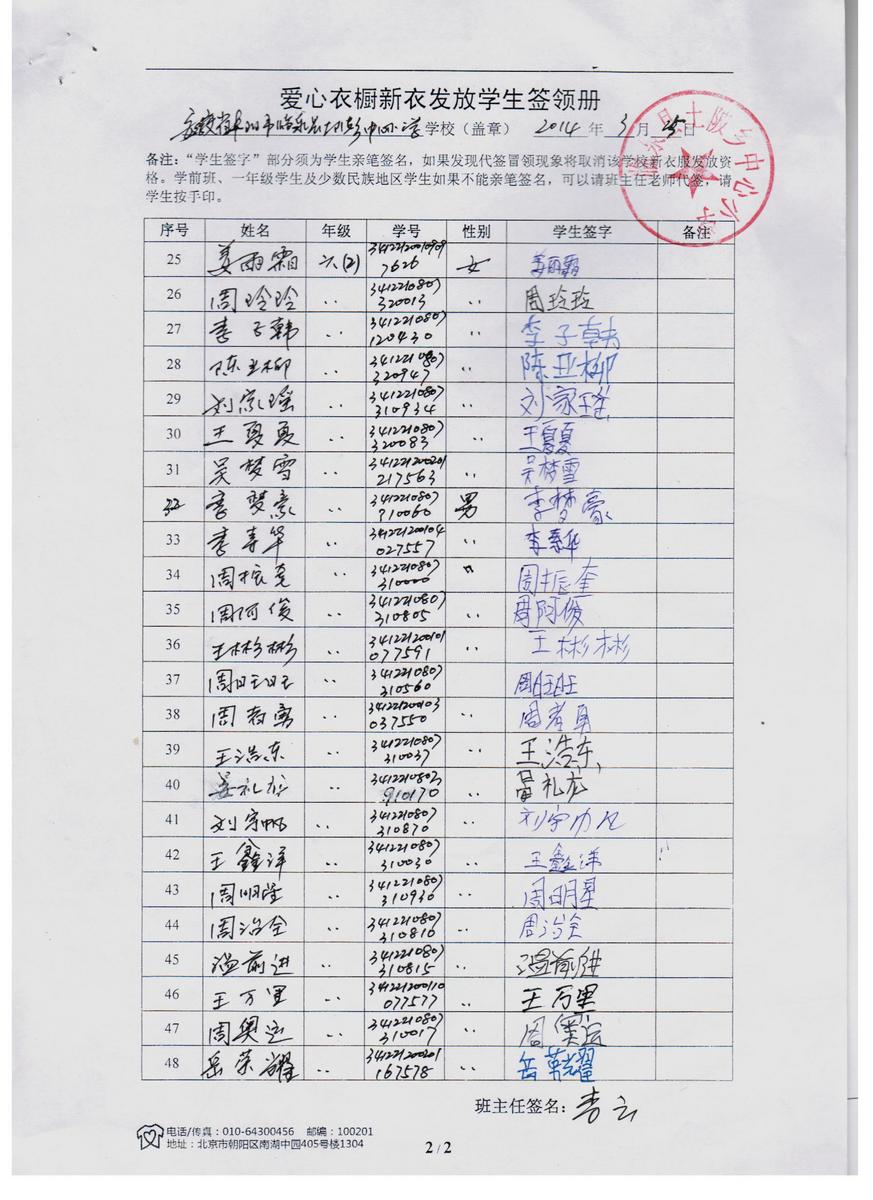 爱心衣橱新衣发放学生签领册
学校（盖章） 2014 年 3 月 25 日
备注：“学生签字”部分须为学生亲笔签名，如果发现代签冒领现象将取消该学校新衣服发放资
格。学前班、一年级学生及少数民族地区学生如果不能亲笔签名，可以请班主任老师代签，请
学生按手印。
土陂乡中心小学
序号 姓名 年级 学号 性别 学生签字 备注
25 姜雨霜 六(2) 341221200109097626 女 姜雨霜
26 周玲玲 .. 3412210807320013 .. 周玲玲
27 李子韩 .. 3412210807120430 .. 李子韩
28 陈亚柳 .. 3412210807320947 .. 陈亚柳
29 刘家瑶 .. 3412210807310934 .. 刘家瑶
30 王夏夏 .. 3412210807320083 .. 王夏夏
31 吴梦雪 .. 341221200201217563 .. 吴梦雪
32 李梦豪 .. 3412210807910060 男 李梦豪
33 李寿华 .. 341221200104027557 ..
34 周振奎 .. 3412210807310000 〃 周振奎
35 周阿俊 .. 3412210807310805 .. 周阿俊
36 王彬彬 .. 341221200101077591 .. 王彬彬
37 周旺旺 .. 3412210807310560 .. 周旺旺
38 周孝勇 .. 341221200103037550 .. 周孝勇
39 王浩东 .. 3412210807310037 .. 王浩东
40 姜礼龙 .. 3412210802910170 .. 礼龙
41 刘宇帆 .. 3412210807310870 .. 刘宇帆
42 王鑫洋 .. 3412210807310030 .. 王鑫洋
43 周明星 .. 3412210807310936 .. 周明星
44 周治全 .. 3412210807310816 .. 周治全
45 温前进 .. 3412210807310815 .. 温前进
46 王万里 .. 341221200110077577 .. 王万里
47 周奥运 .. 3412210807310017 .. 周奥运
48 岳荣耀 .. 341221200201167578 .. 岳荣耀
班主任签名：李云
电话/传真：010-64300456 邮编：100201
地址：北京市朝阳区南湖中园405号楼1304
2/2